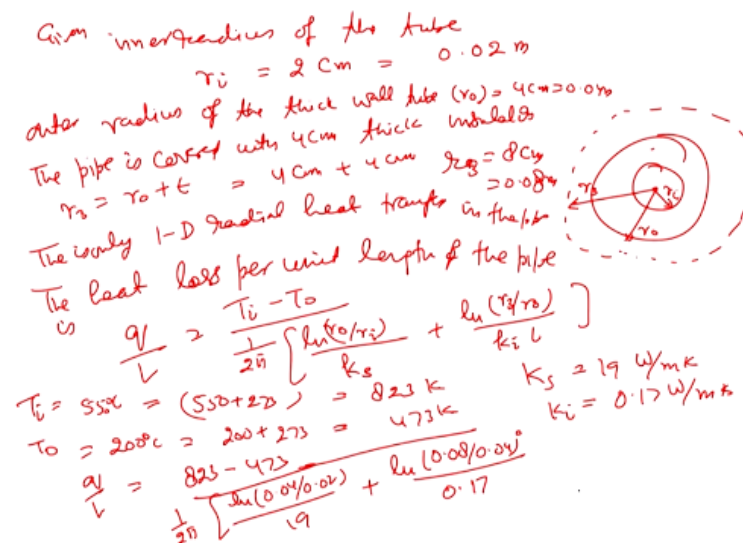 Given inner radius of the tube
ri = 2 cm = 0.02 m
outer radius of the thick wall tube (ro) = 4cm = 0.04m
The pipe is covered with 4cm thick insulation
r3 = ro + t = 4cm + 4cm r3 = 8cm
= 0.08m
The is only 1-D radial heat transfer in the pipe
The heat loss per unit length of the pipe
is
q/L = (Ti - To) / (1/2π [ln(ro/ri)/ks + ln(r3/ro)/ki L])
Ti = 550°C = (550+273) = 823 K
To = 200°C = 200 + 273 = 473K
ks = 19 W/mK
ki = 0.17 W/mK
q/L = (823 - 473) / (1/2π [ln(0.04/0.02)/19 + ln(0.08/0.04)/0.17
r3
ri
ro